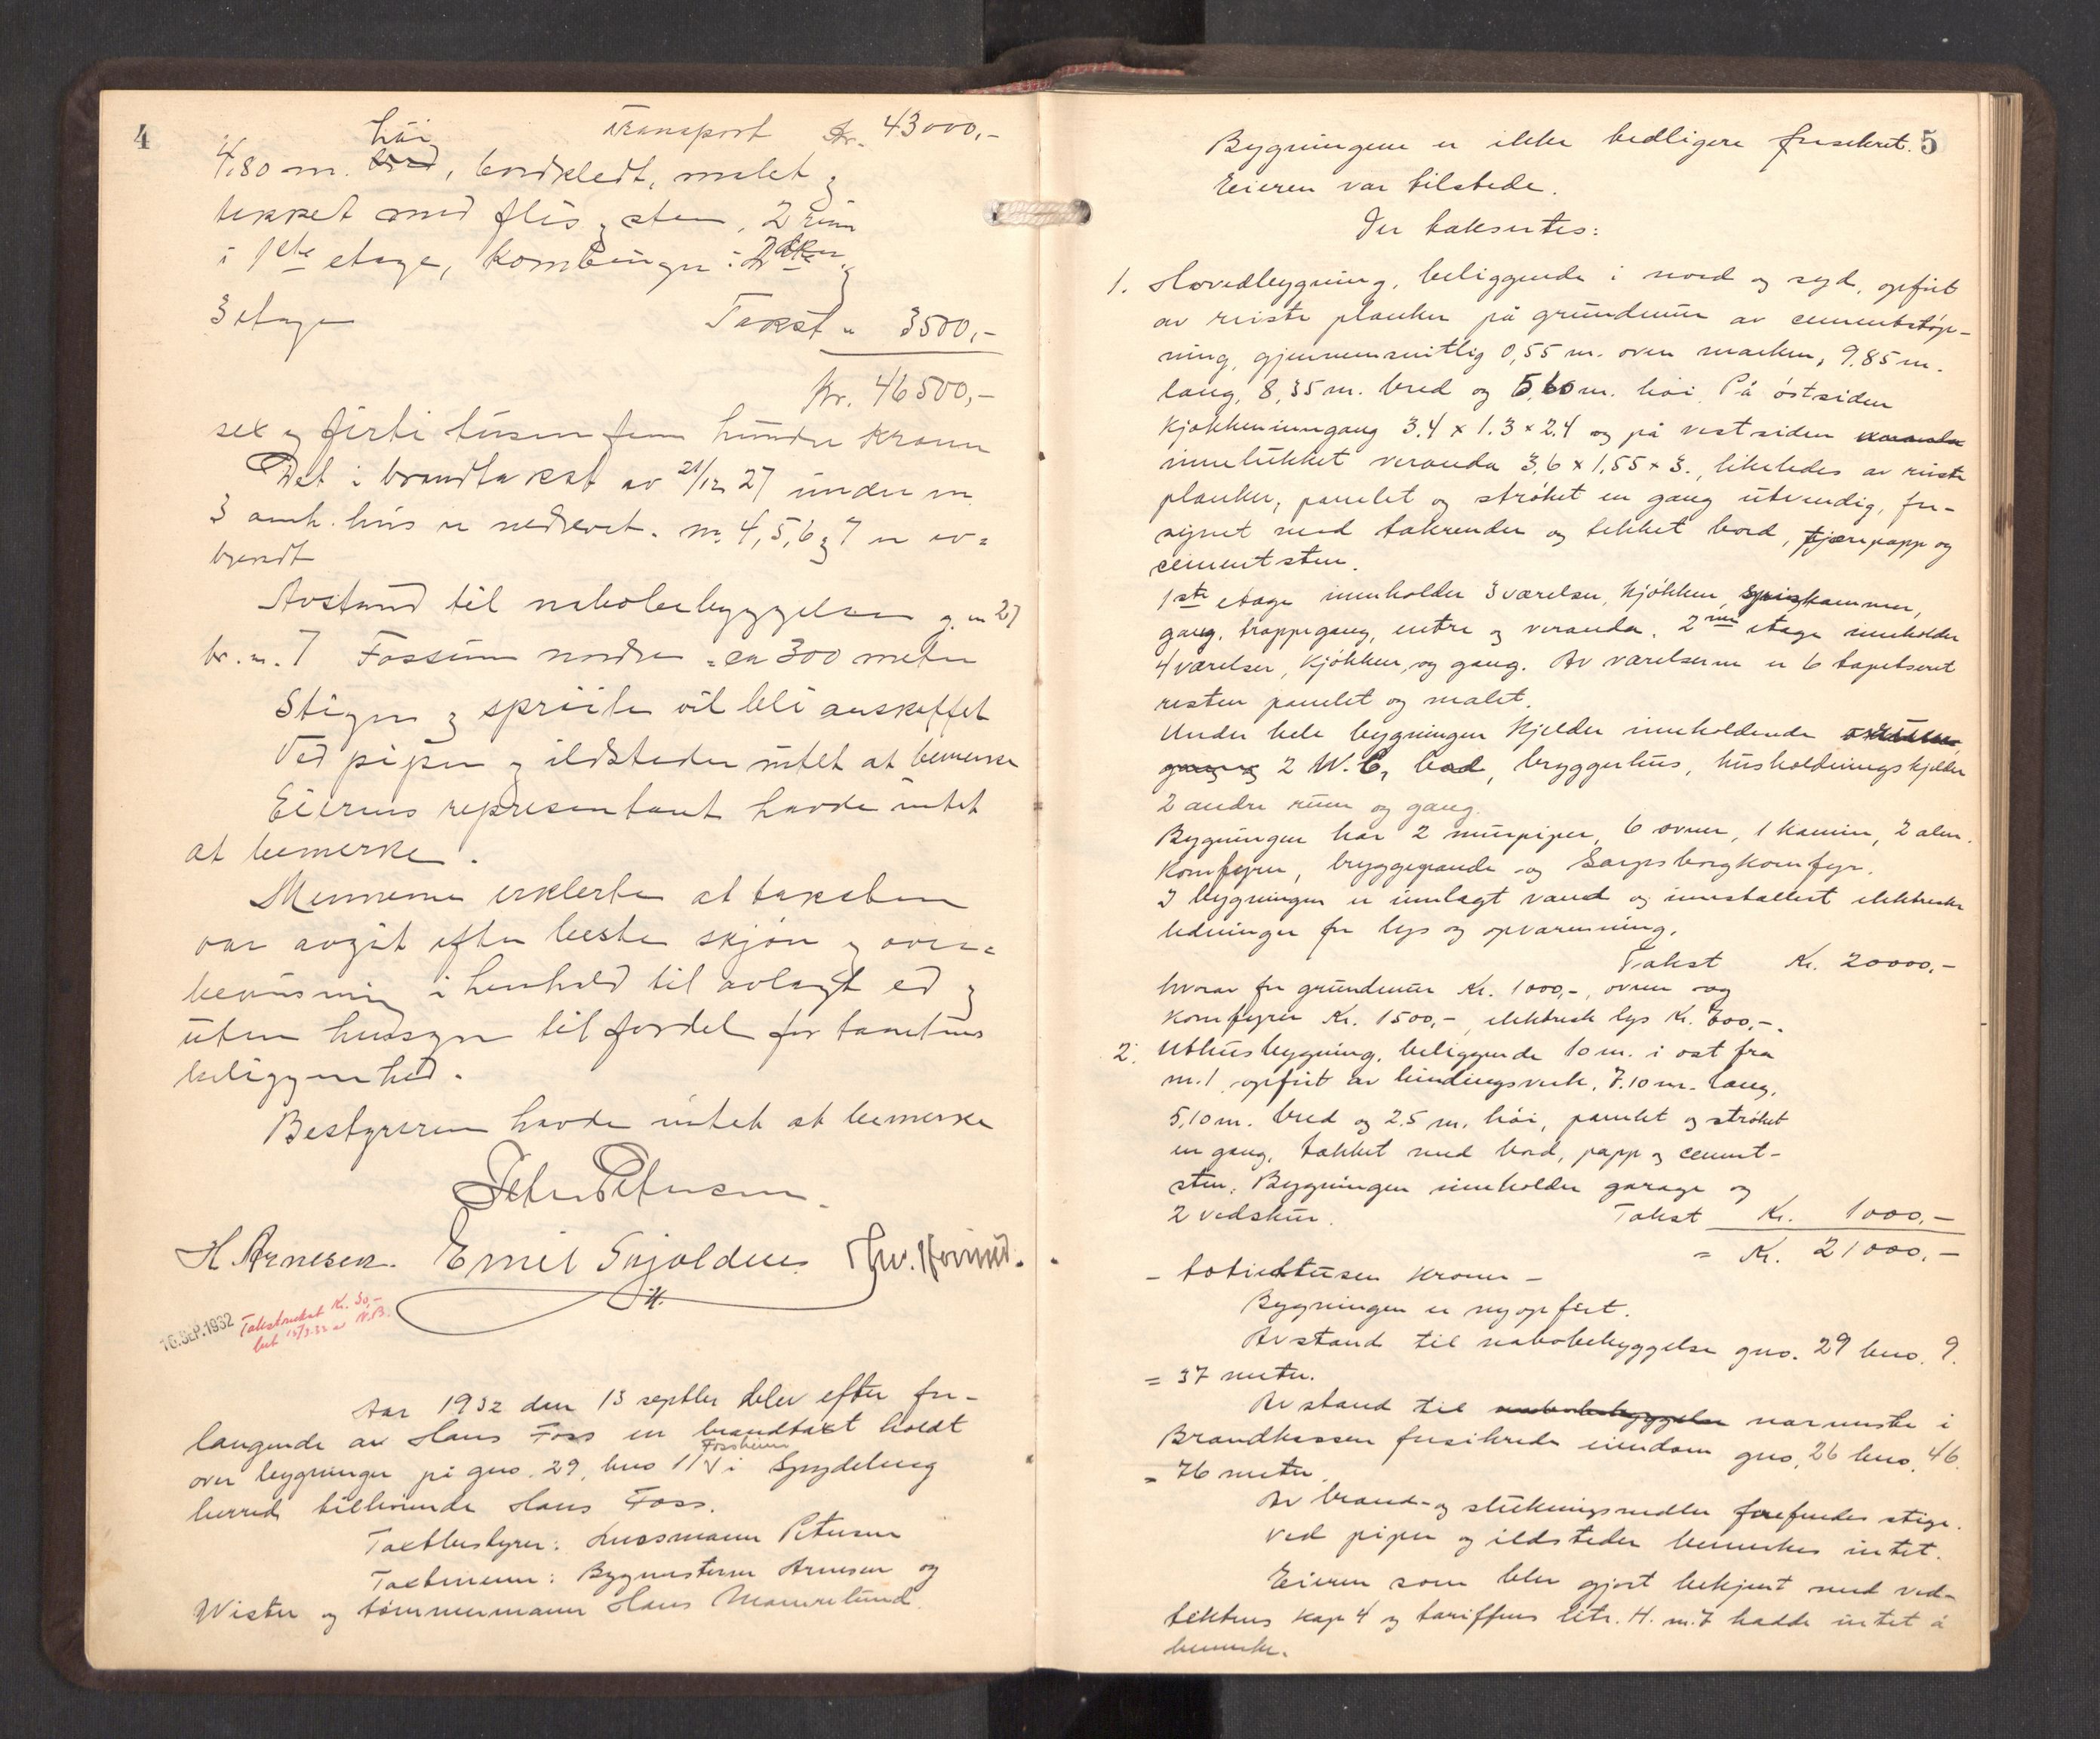 4
Transport Kr. 43000,-
høi
4,80 m. bred, bordkledt, malet og
tekket med flis og sten, 2 rum
i 1ste etage, kornbinger i 2den og
3 etage
Takst " 3500,-
Kr. 46500,-
sex og førti tusen fem hundre kroner
Det i brandtakst av 21/12 27 under nr.
3 anf. hus er nedrevet. nr. 4, 5, 6 og 7 er av-
brendt
Avstand til nabobebyggelsen g. nr 27
br. nr. 7 Fossum nordre = ca 300 meter
Stiger og sprøite vil bli anskaffet
Ved piper og ildsteder intet at bemerke
Eierens representant havde intet
at bemerke.
Mennene erklerte at taksten
var avgit efter beste skjøn og over-
bevisning i henhold til avlagt ed og
uten hensyn til fordel for tomtens
beliggenhed.
Bestyreren havde intet at bemerke
Peter Petersen
H Arnesen. Emil Skjolden Thv.
16. SEP. 1932 Takstbruket Kr. 30,-
bet 15/9.32 N.B.
Aar 1932 den 13 septbr blev efter for-
langende av Hans Foss en brandtaxt holdt
Fossheim
over bygninger på gno. 29, bno 11 i Spydeberg
herred tilhørende Hans Foss.
Taxtbestyrer: Lensmann Petersen
Taxtmenn: Bygmesterne Arnesen og
Wister og tømmermann Hans Mourilund
5
Bygningene er ikke tidligere forsikret.
Eieren var tilstede.
Der taksertes:
1. Hovedbygning, beliggende i nord og syd, opført
av reiste planker på grundmur av cementstøp-
ning, gjennemsnitlig 0,55 m. over marken, 9,85 m.
lang, 8,35 m. bred og 5,60 m. høi. På østsiden
kjøkkeninngang 3.4 x 1.3 x 2.4 og på vestsiden veranda
innelukket veranda 3,6 x 1,55 x 3., likeledes av reiste
planker, panelet og strøket en gang utvendig, for-
synet med takrender og tekket bord, tjærepapp og
cementsten.
1ste etage inneholder 3 værelser, kjøkken, spiskammer,
gang, trappegang, entre og veranda. 2nen etage inneholder
4 værelser, kjøkken, og gang. Av værelserne er 6 tapetseret
resten panelet og malet.
Under hele bygningen kjelder inneholdende
gang og 2 W.C, bad, bryggerhus, husholdningskjelder
2 andre rum og gang.
Bygningen har 2 murpiper, 6 ovner, 1 kamin, 2 alm.
komfyrer, bryggepande og Sarpsborgkomfyr.
I bygningen er innlagt vand og innstallert elektriske
ledninger for lys og opvarmning.
Takst Kr. 20000,-
hvorav for grundmur Kr. 1000,-, ovner og
komfyrer Kr. 1500,-, elektrisk lys Kr. 600,-.
2. Uthusbygning, beliggende 10 m. i øst fra
nr. 1 opført av bindingsverk, 7.10 m. lang,
5,10 m. bred og 2,5 m. høi, panelet og strøket
en gang, tekket med bord, papp og cement-
sten. Bygningen inneholder garage og
2 vedskur. Takst Kr. 1000,-
= Kr. 21000,-
- totiettusen kroner -
Bygningen er nyopført.
Avstand til nabobebyggelse gno. 29 bno. 9.
= 37 meter.
Avstand til nabobebyggelse nærmeste i
Brandkassen forsikrede eiendom gno. 26 bno. 46.
= 76 meter.
Av brand- og slukningsmidler forefindes stige.
Ved piper og ildsteder bemerkes intet.
Eieren som blev gjort bekjent med ved-
tektens kap 4 og tariffens litr. H. nr. 7 hadde intet å
bemerke.